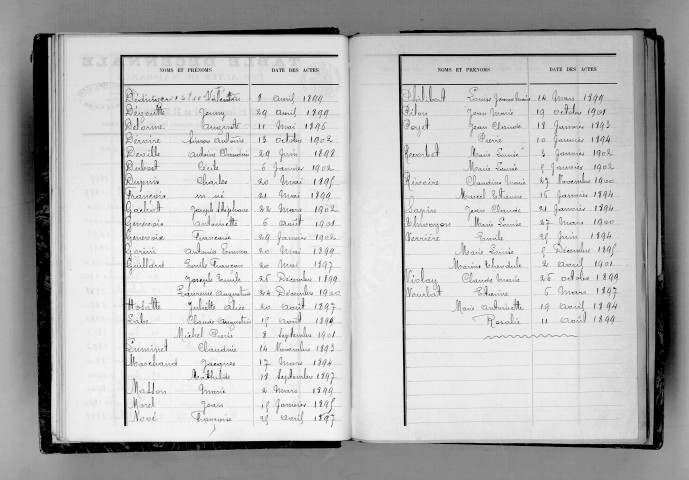 NOMS ET PRÉNOMS DATE DES ACTES
Valentin 8 avril 1899
Jenny 29 avril 1899
Delorme Auguste 11 Mai 1896
Antoine 13 octobre 1902
Derville Antoine Claudius 29 Juin 1898
Dubost Cécile 6 Janvier 1902
Dupuis Charles 20 Mai 1895
François 21 Mai 1899
Gachot Joseph Stéphane 22 Mars 1902
Genevois Antoinette 6 août 1901
Genevoix Francisque 29 Janvier 1902
Gorin Antonia Emma 20 Mai 1899
Guillard Emile François 20 Mai 1897
Joseph Emile 26 Décembre 1899
Laurence Augustine 24 Décembre 1900
Juliette Alice 20 août 1897
Claude Augustin 15 août 1894
Michel Pierre 8 septembre 1901
Claudine 14 Novembre 1893
Marchand Jacques 17 Mars 1894
Mathilde 18 septembre 1897
Masson Marie 2 Mars 1899
Morel Jean 15 Janvier 1895
Nové Françoise 25 avril 1897
NOMS ET PRÉNOMS DATE DES ACTES
Philibert 14 Mars 1899
Pilon Jean Marie 19 octobre 1901
Poyet Jean Claude 18 Janvier 1893
Pierre 10 Janvier 1894
Marie Louise 3 Janvier 1902
Marie Louise 5 Janvier 1902
Rivoire Claudine Marie 27 Novembre 1900
Marcel Etienne 15 Janvier 1894
Sapin Jean Claude 21 Janvier 1894
Marie Louise 27 Mars 1900
Verrière 25 Juin 1894
Marie Louise 5 Décembre 1895
Marius 2 avril 1901
Violay Claude Marie 26 octobre 1899
Etienne 5 Mars 1897
Marie Antoinette 19 avril 1894
Rosalie 11 août 1899